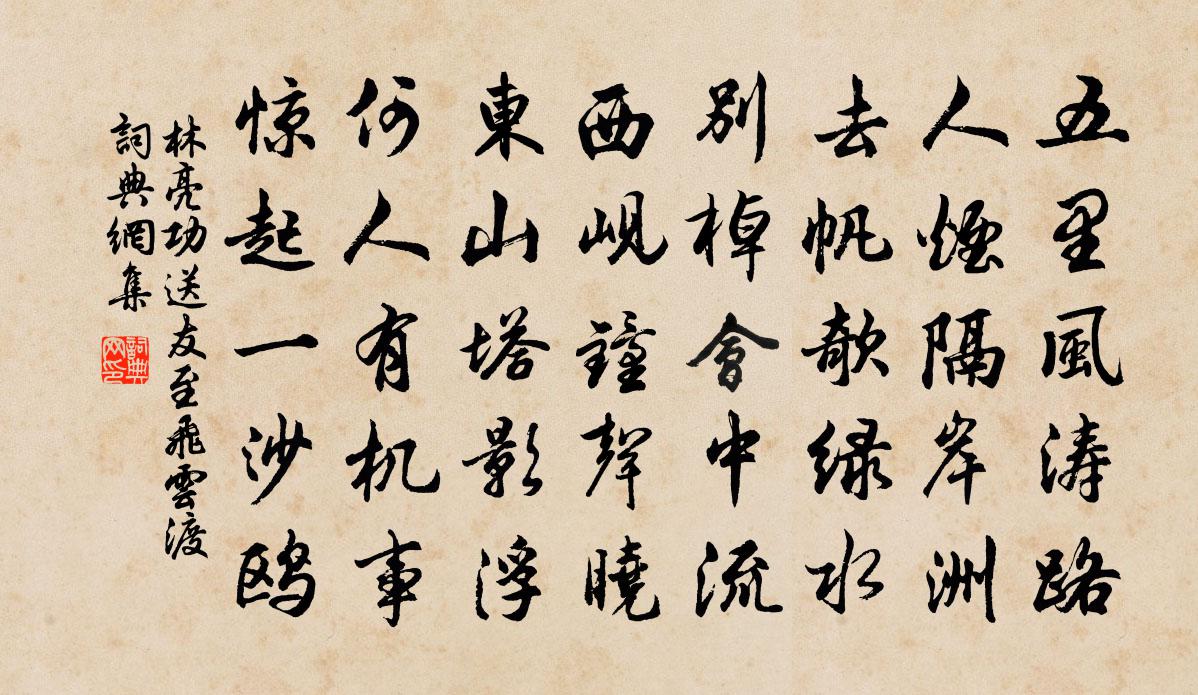 五里風涛路
人煙隔岸洲
去帆欹绿水
别棹會中流
西岘鐘聲曉
東山塔影浮
何人有机事
惊起一沙鸥
林亮功送友至飛雲渡
詞典網集
詞典网印